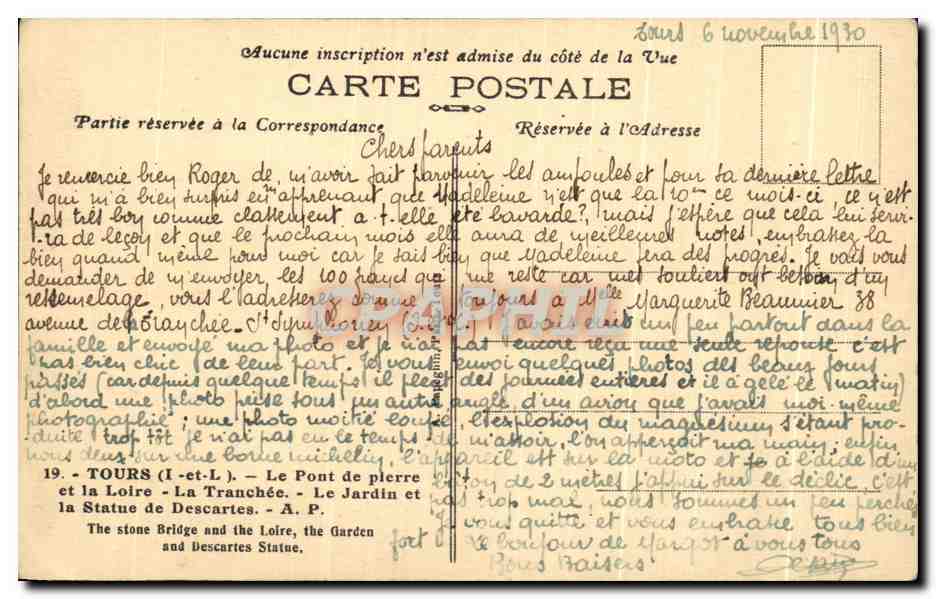 Tours 6 novembre 1930
Aucune inscription n'est admise du côté de la Vue
CARTE POSTALE
Partie réservée à la Correspondance
Réservée à l'Adresse
Chers parents
Je remercie bien Roger de m'avoir fait parvenir les ampoules et pour sa dernière lettre
qui m'a bien surpris en m'apprenant que Madeleine n'est que la 10me ce mois-ci, ce n'est
pas très bon comme classement a-t-elle été bavarde?, mais j'espère que cela lui servi-
-ra de leçon et que le prochain mois elle aura de meilleures notes, embrassez la
bien quand même pour moi car je sais bien que Madeleine fera des progrès. Je vais vous
demander de m'envoyer les 100 francs qui me reste car mes souliers ont besoin d'un
ressemelage, vous l'adresserez comme toujours à Melle Marguerite Beaumier 38
avenue de la Tranchée - St Symphorien I.et.L. J'avais écrit un peu partout dans la
famille et envoyé ma photo et je n'ai pas encore reçu une seule réponse c'est
pas bien chic de leur part. Je vous envoi quelques photos des beaux jours
passés (car depuis quelque temps il pleut des journées entières et il a gelé le matin)
d'abord une photo prise sous un autre angle d'un avion que j'avais moi-même
photographié; une photo moitié loupée, l'explosion du magnésium s'étant pro-
duite trop tôt je n'ai pas eu le temps de m'assoir, l'on apperçoit ma main; enfin
nous deux sur une borne michelin, l'appareil est sur la moto et je à l'aide d'un
baton de 2 mètres j'appui sur le déclic, c'est
pas trop mal, nous sommes un peu perchés
Je vous quitte et vous embrasse tous bien
fort Le bonjour de Margot à vous tous
Bons Baisers
19. - TOURS (I-et-L). - Le Pont de pierre
et la Loire - La Tranchée. - Le Jardin et
la Statue de Descartes. - A. P.
The stone Bridge and the Loire, the Garden
and Descartes Statue.
CPAPHIL